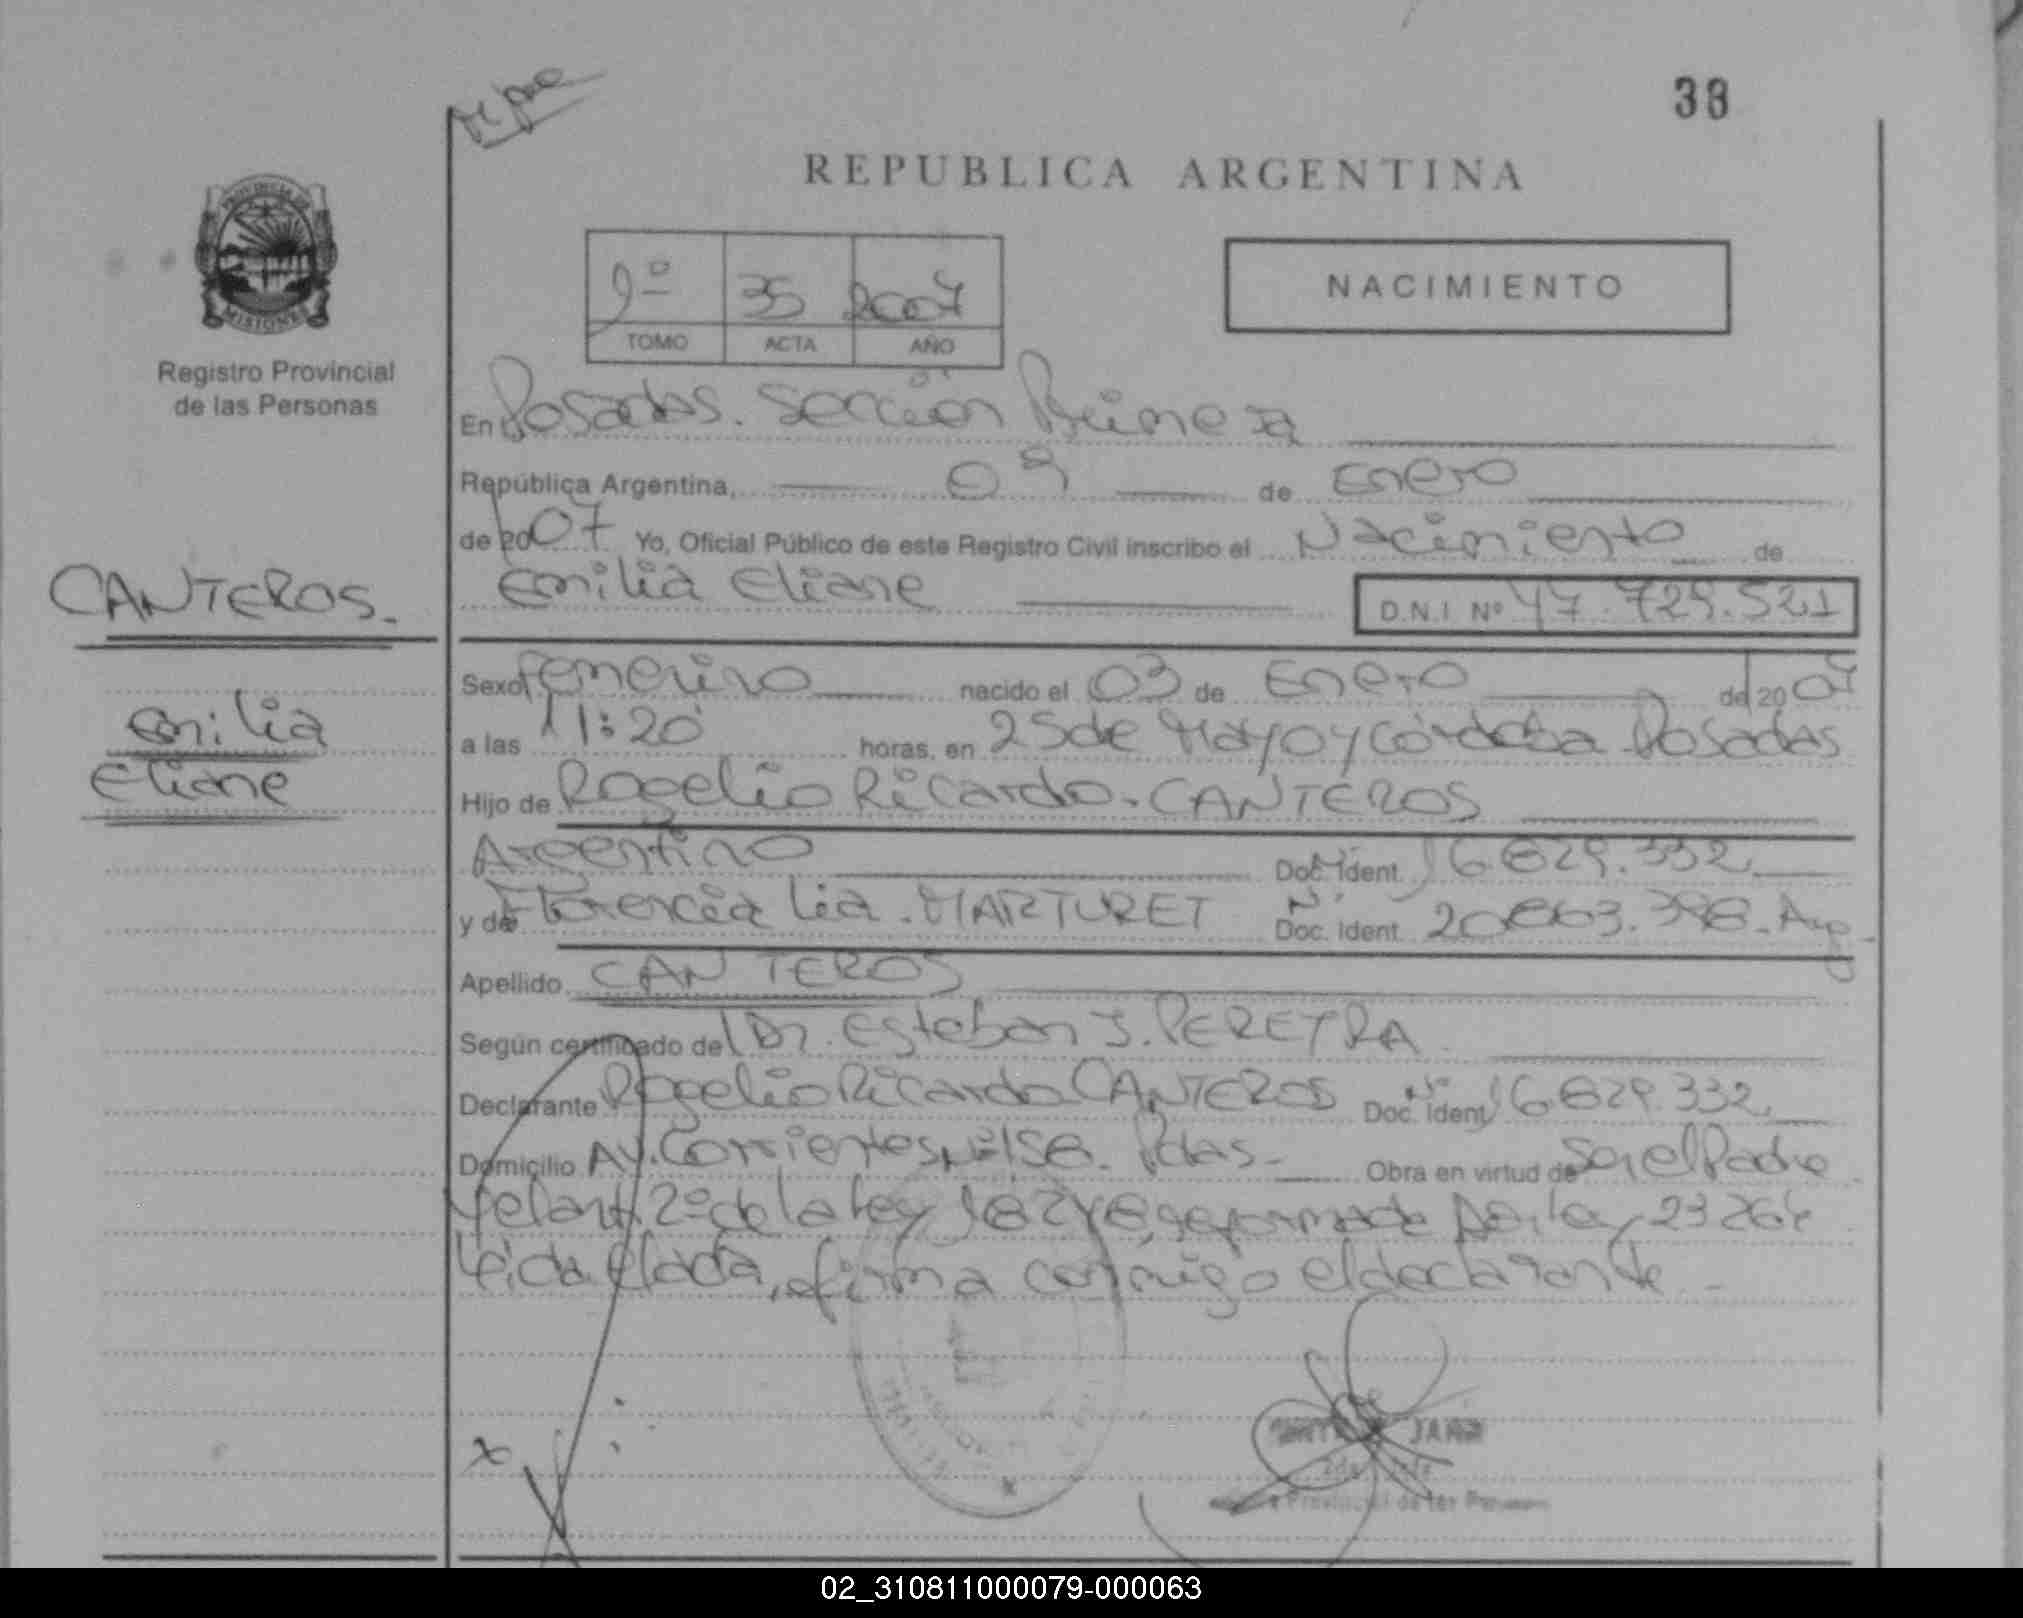 38
REPUBLICA ARGENTINA
PROVINCIA DE
MISIONES
Registro Provincial
de las Personas
9º 35 2007
TOMO ACTA AÑO
NACIMIENTO
En Posadas. Sección Primera
República Argentina, 09 de Enero
de 2007 Yo, Oficial Público de este Registro Civil inscribo el Nacimiento de
Emilia Eliane D.N.I. Nº 47.729.521
CANTEROS.
Emilia
Eliane
Sexo femenino nacido el 03 de Enero de 2007
a las 11:20 horas, en 25 de Mayo y Córdoba Posadas
Hijo de Rogelio Ricardo. CANTEROS
Argentino Doc. Ident. 16.829.332
y de Florencia Lia. MARTURET Doc. Ident. 20.863.398. Arg
Apellido CANTEROS
Según certificado de Dr. Esteban J. PEREYRA
Declarante Rogelio Ricardo CANTEROS Doc. Ident 16.829.332
Domicilio Av. Corrientes Nº 158. Pdas. Obra en virtud de Ser el Padre
y el art. 2º de la Ley 18248, reformada por ley 23264
Leida el acta, firma conmigo el declarante.
x
Provincial de las
02_310811000079-000063